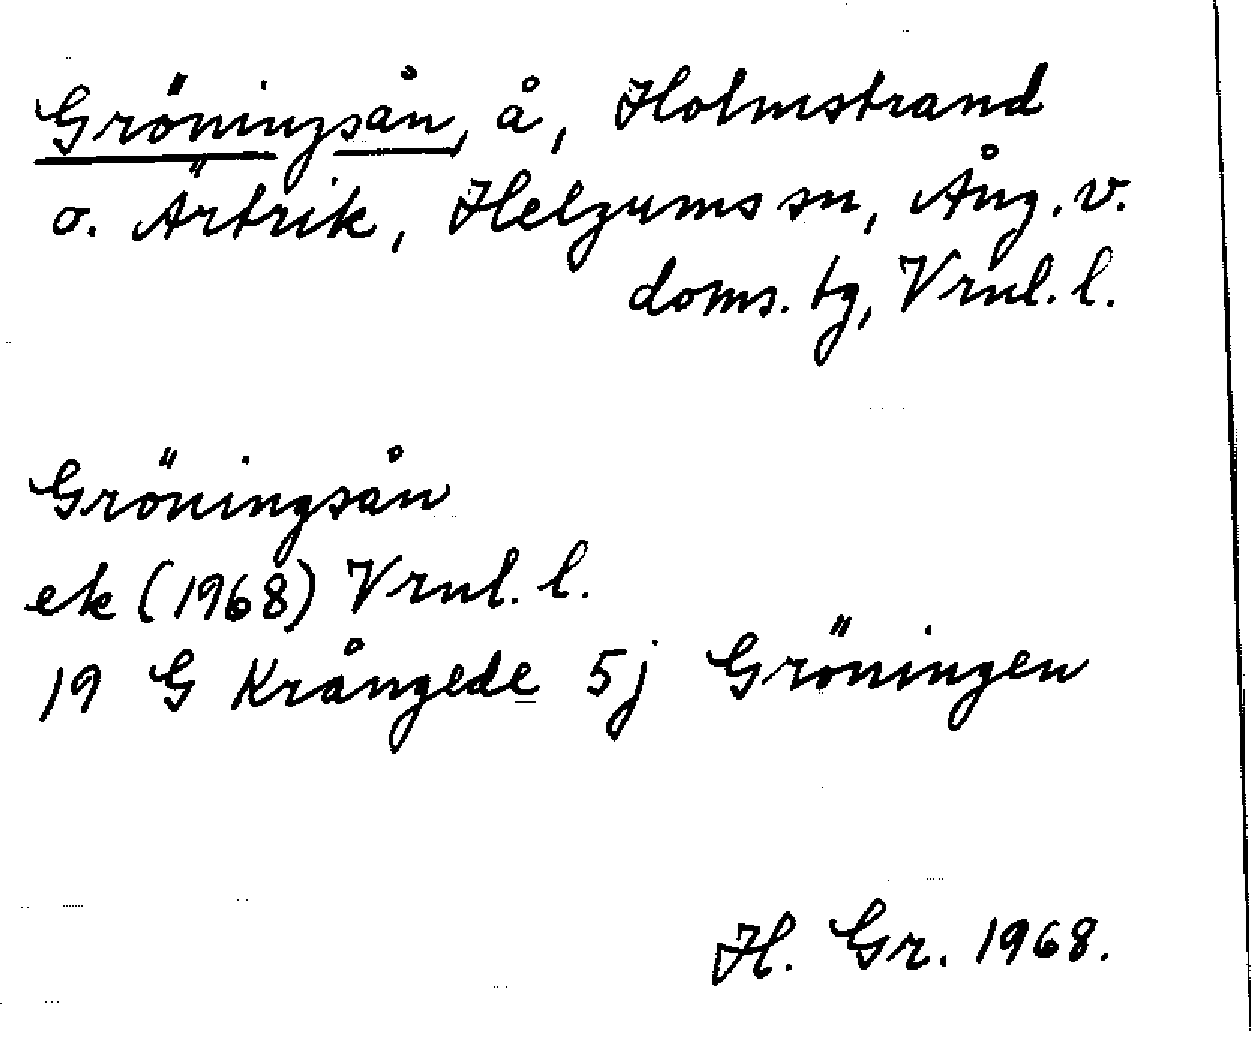 Gröningsån, å, Holmstrand
o. Ärtrik, Helgums sn, Ång. v.
doms. tg, Vrnl. l.
Gröningsån
ek (1968) Vrnl. l.
19 G Krångede 5j Gröningen
H. Gr. 1968.